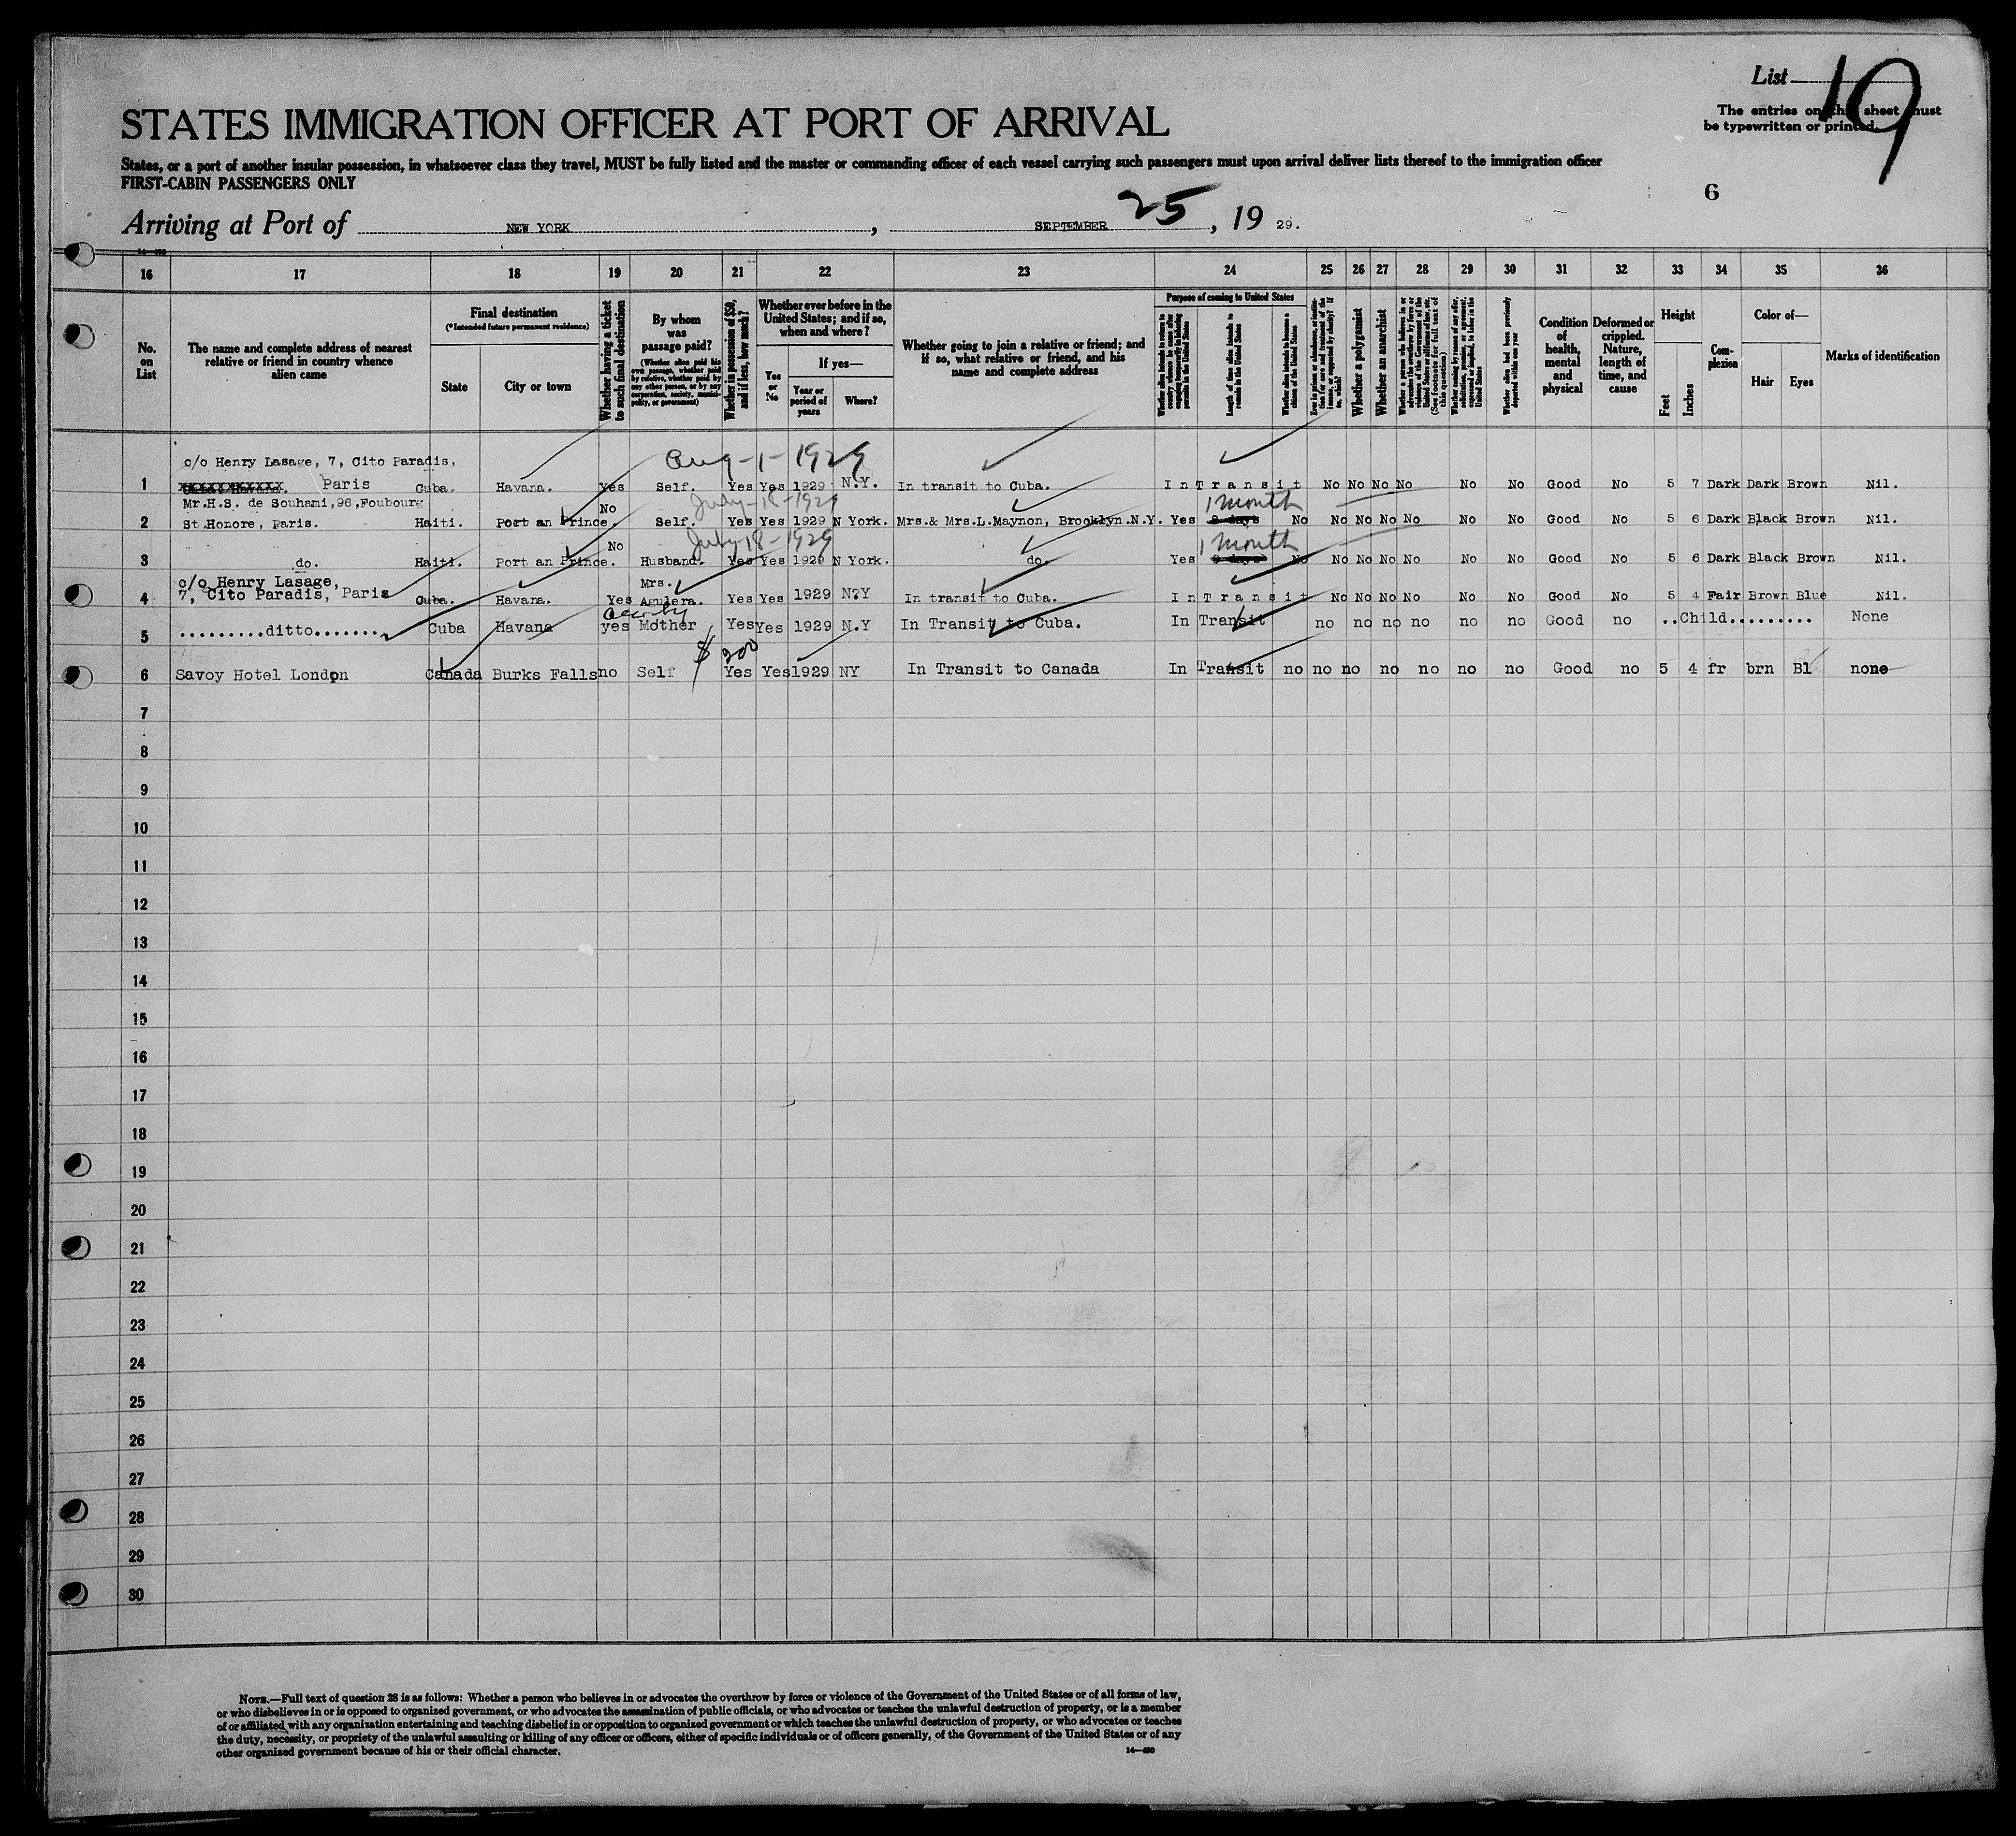 List 19
The entries on this sheet must
be typewritten or printed.
STATES IMMIGRATION OFFICER AT PORT OF ARRIVAL
States, or a port of another insular possession, in whatsoever class they travel, MUST be fully listed and the master or commanding officer of each vessel carrying such passengers must upon arrival deliver lists thereof to the immigration officer
FIRST-CABIN PASSENGERS ONLY
6
Arriving at Port of NEW YORK, SEPTEMBER 25, 19 29.
16 17 18 19 20 21 22 23 24 25 26 27 28 29 30 31 32 33 34 35 36
No. on List
The name and complete address of nearest relative or friend in country whence alien came
Final destination
(*Intended future permanent residence)
State
City or town
Whether having a ticket to such final destination
By whom was passage paid?
(Whether alien paid his own passage, whether paid by relative, whether paid by any other person, or by any corporation, society, municipality, or government)
Whether in possession of $50, and if less, how much?
Whether ever before in the United States; and if so, when and where?
Yes or No
If yes—
Year or period of years
Where?
Whether going to join a relative or friend; and if so, what relative or friend, and his name and complete address
Purpose of coming to United States
Whether alien intends to return to country whence he came after
Length of time alien intends to remain in the United States
Whether alien intends to become a citizen of the United States
Whether a polygamist
Whether an anarchist
(See footnote for full text of this question)
Whether alien had been previously deported within one year
Condition of health, mental and physical
Deformed or crippled. Nature, length of time, and cause
Height
Feet
Inches
Complexion
Color of—
Hair
Eyes
Marks of identification
c/o Henry Lasage, 7, Cito Paradis, Aug-1-1929
1 Paris Cuba. Havana. Yes Self. Yes Yes 1929 N.Y. In transit to Cuba. In Transit No No No No Good No 5 7 Dark Dark Brown Nil.
Mr.H.S. de Souhami,96,Foubourg No July-18-1929 1 month
2 St.Honore, Paris. Haiti. Port an Prince. Self. Yes Yes 1929 N York. Mrs.& Mrs.L.Maynon, Brooklyn.N.Y. Yes 8 days No No No No No No No Good No 5 6 Dark Black Brown Nil.
No July-18-1929 1 month
3 do. Haiti. Port an Prince. Husband. Yes Yes 1929 N York. do. Yes 8 days No No No No No No No Good No 5 6 Dark Black Brown Nil.
c/o Henry Lasage, Mrs.
4 7, Cito Paradis, Paris Cuba. Havana. Yes Agulera. Yes Yes 1929 N?Y In transit to Cuba. In Transit No No No No No No Good No 5 4 Fair Brown Blue Nil.
5 .........ditto........ Cuba Havana yes Mother Yes Yes 1929 N.Y In Transit to Cuba. In Transit no no no no no no Good no ..Child......... None
$200
6 Savoy Hotel London Canada Burks Falls no Self Yes Yes 1929 NY In Transit to Canada In Transit no no no no no no no Good no 5 4 fr brn Bl none
7
8
9
10
11
12
13
14
15
16
17
18
19
20
21
22
23
24
25
26
27
28
29
30
NOTE.—Full text of question 28 is as follows: Whether a person who believes in or advocates the overthrow by force or violence of the Government of the United States or of all forms of law,
or who disbelieves in or is opposed to organized government, or who advocates the assassination of public officials, or who advocates or teaches the unlawful destruction of property, or is a member
of or affiliated with any organization entertaining and teaching disbelief in or opposition to organized government or which teaches the unlawful destruction of property, or who advocates or teaches
the duty, necessity, or propriety of the unlawful assaulting or killing of any officer or officers, either of specific individuals or of officers generally, of the Government of the United States or of any
other organized government because of his or their official character.
14—480